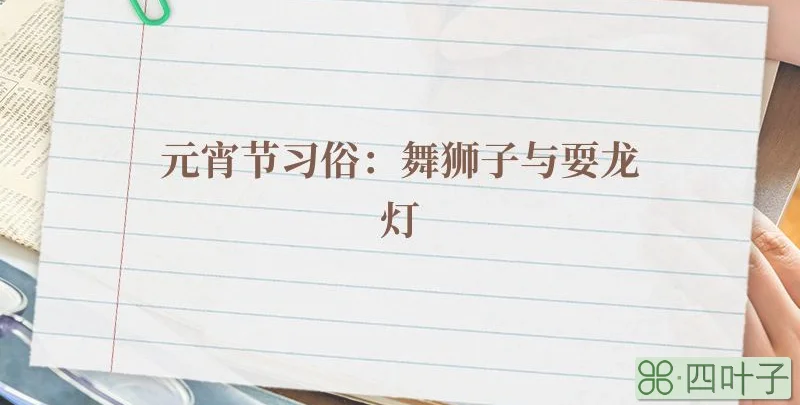 元宵节习俗：舞狮子与耍龙
灯
⌘·四叶子